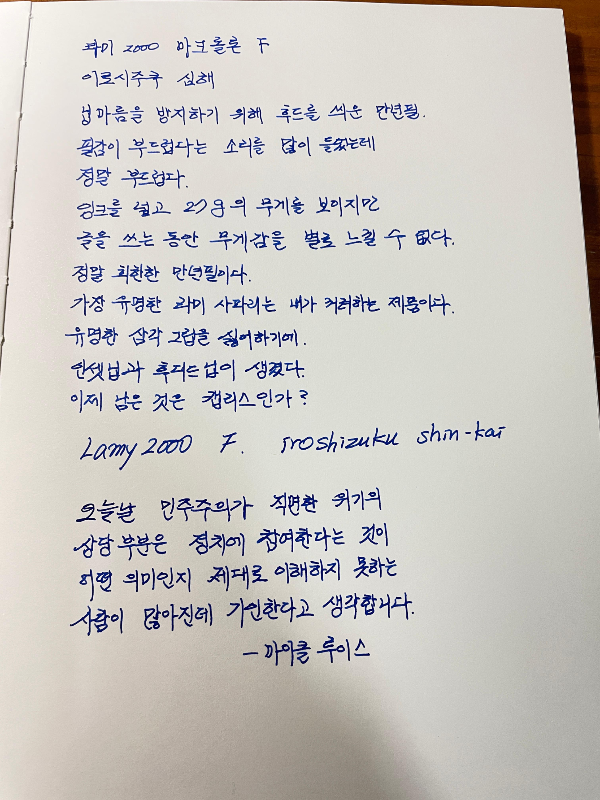 라미 2000 마크롤론 F
이로시주쿠 심해
닙마름을 방지하기 위해 후드를 씌운 만년필.
필감이 부드럽다는 소리를 많이 들었는데
정말 부드럽다.
잉크를 넣고 27g의 무게를 보이지만
글을 쓰는 동안 무게감을 별로 느낄 수 없다.
정말 희한한 만년필이다.
가장 유명한 라미 사파리는 내가 꺼려하는 제품이다.
유명한 삼각 그립을 싫어하기에.
인셋닙과 후디드닙이 생겼다.
이제 남은 것은 캡리스인가?
Lamy 2000 F. iroshizuku shin-kai
오늘날 민주주의가 직면한 위기의
상당 부분은 정치에 참여한다는 것이
어떤 의미인지 제대로 이해하지 못하는
사람이 많아진데 기인한다고 생각합니다.
- 마이클 루이스